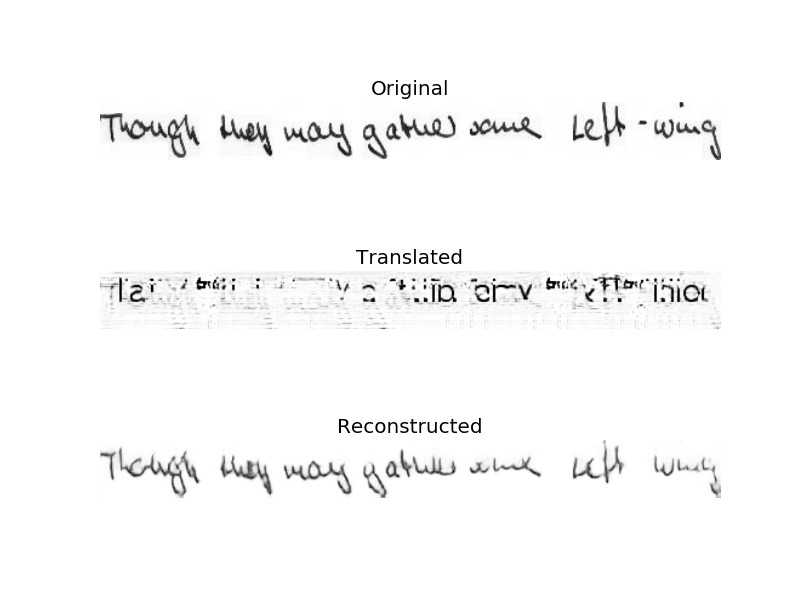 Original
Though they may gather some left-wing
Translated
Reconstructed
Though they may gather some left wing